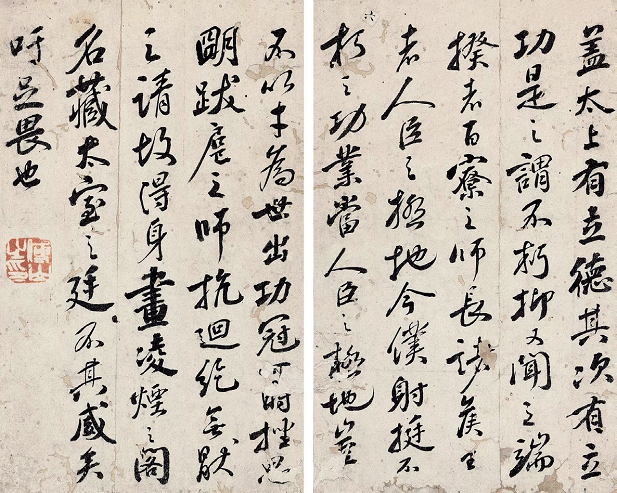 蓋太上有立德其次有立
功是之謂不朽抑又聞之端
揆者百寮之师長諸侯王
者人臣之極地今僕射挺不
朽之功業當人臣之極地豈
不以才為世出功冠時挫思
明跋扈之师抗迴紇無厭
之請故得身畫凌煙之閣
名藏太室之廷不其盛矣
吁足畏也
傅山之印